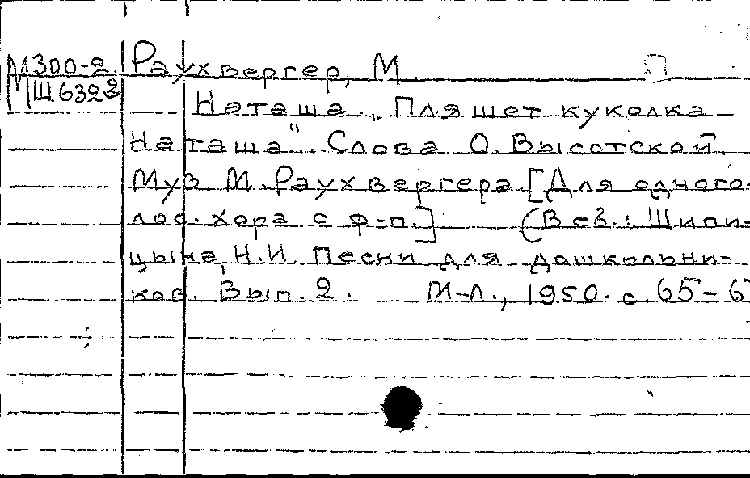 М300-2 Раухвергер, М
МШ632
Наташа. „Пляшет куколка
Наташа". Слова О. Высотской.
Муз М. Раухвергера. [Для одного-
лос. хора с ф-п.] (В сб.: Шипи-
цына, Н.И. Песни для дошкольни-
ков. Вып. 2. М-Л., 1950. с 65-6